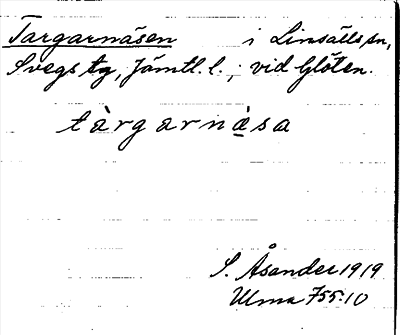 Targarnäsen i Linsälls sn,
Svegs tg, Jämtl. l.; vid Glöten.
tàrgarnä̀sa
S. Åsander 1919
Ulma 755:10